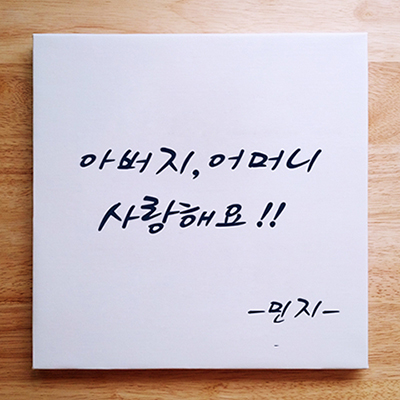 아버지, 어머니
사랑해요!!
-민지-